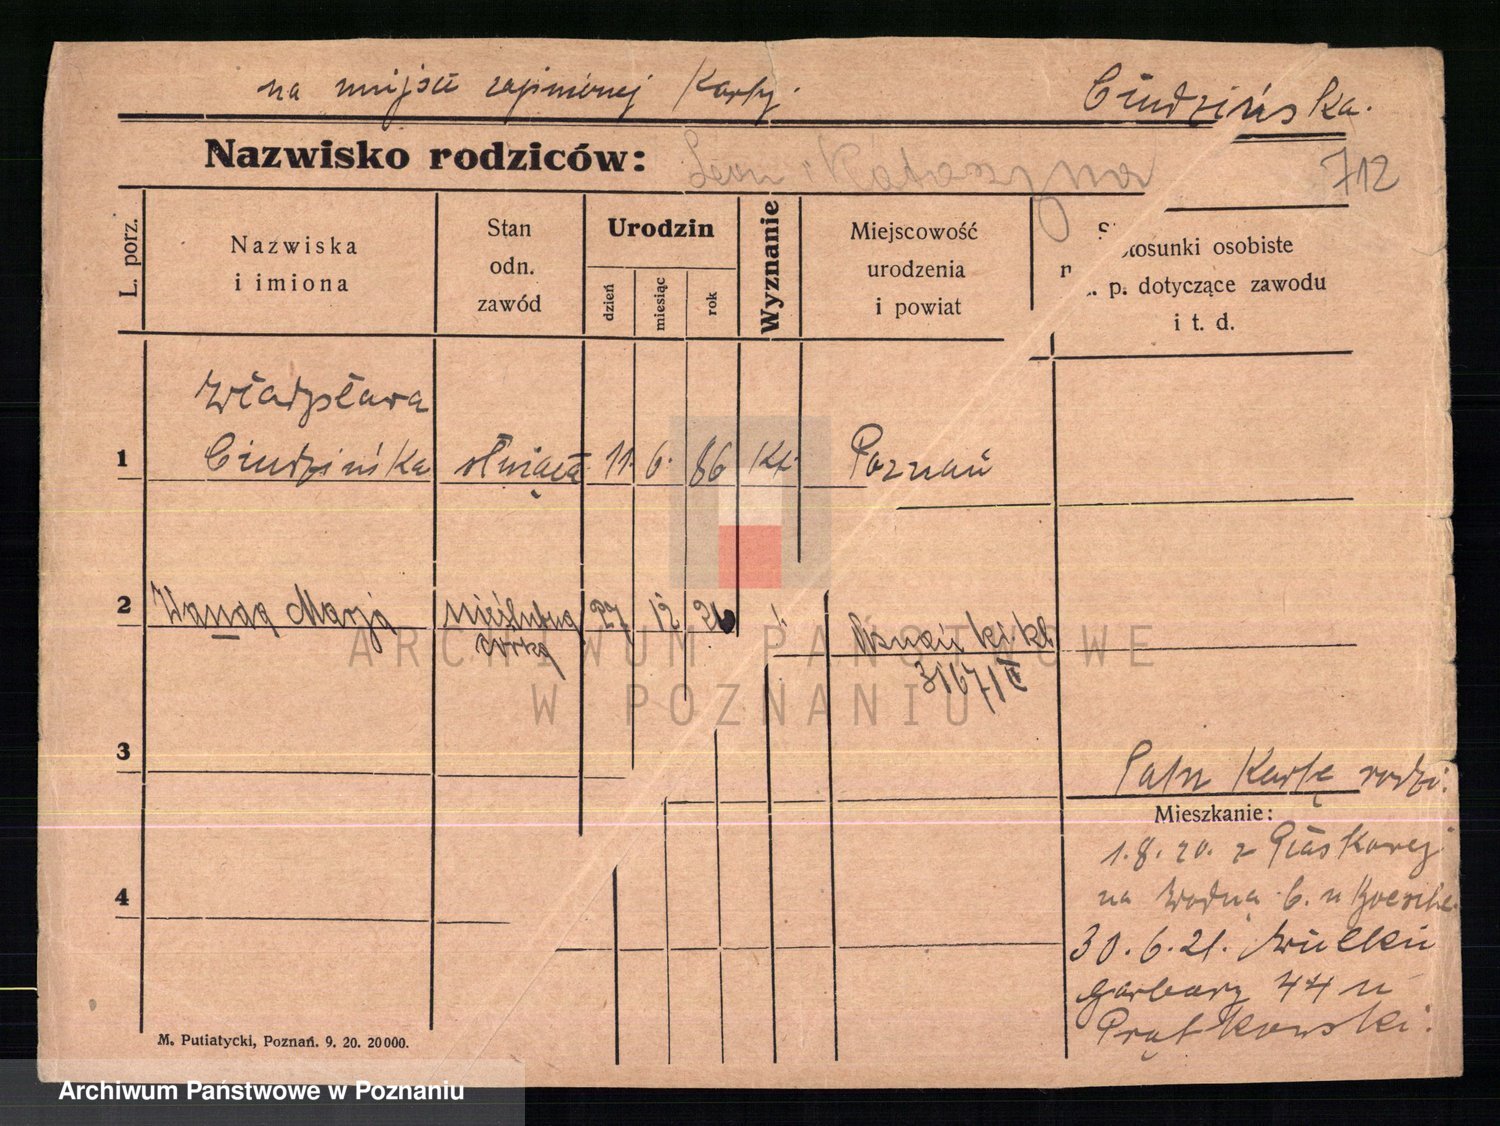 na miejsce zaginionej Karty.
Ciudzińska.
Nazwisko rodziców: Leon i Katarzyna
712
L. porz.
Nazwiska
i imiona
Stan
odn.
zawód
Urodzin
dzień
miesiąc
rok
Wyznanie
Miejscowość
urodzenia
i powiat
Stosunki osobiste
n. p. dotyczące zawodu
i t. d.
Władysława
1 Ciudzińska służąca 11. 6. 86 Kt. Poznań
2 Wanda Marja nieślubna 27 12 20
córka
3
Patrz Kartę rodzi.
Mieszkanie:
1.8.20. z Piaskowej
na Wodną 6. u
4
30.6.21. Wielkie
Garbary 44 u
Prątkowski.
M. Putiatycki, Poznań. 9. 20. 20000.
ARCHIWUM PAŃSTWOWE
W POZNANIU
Archiwum Państwowe w Poznaniu